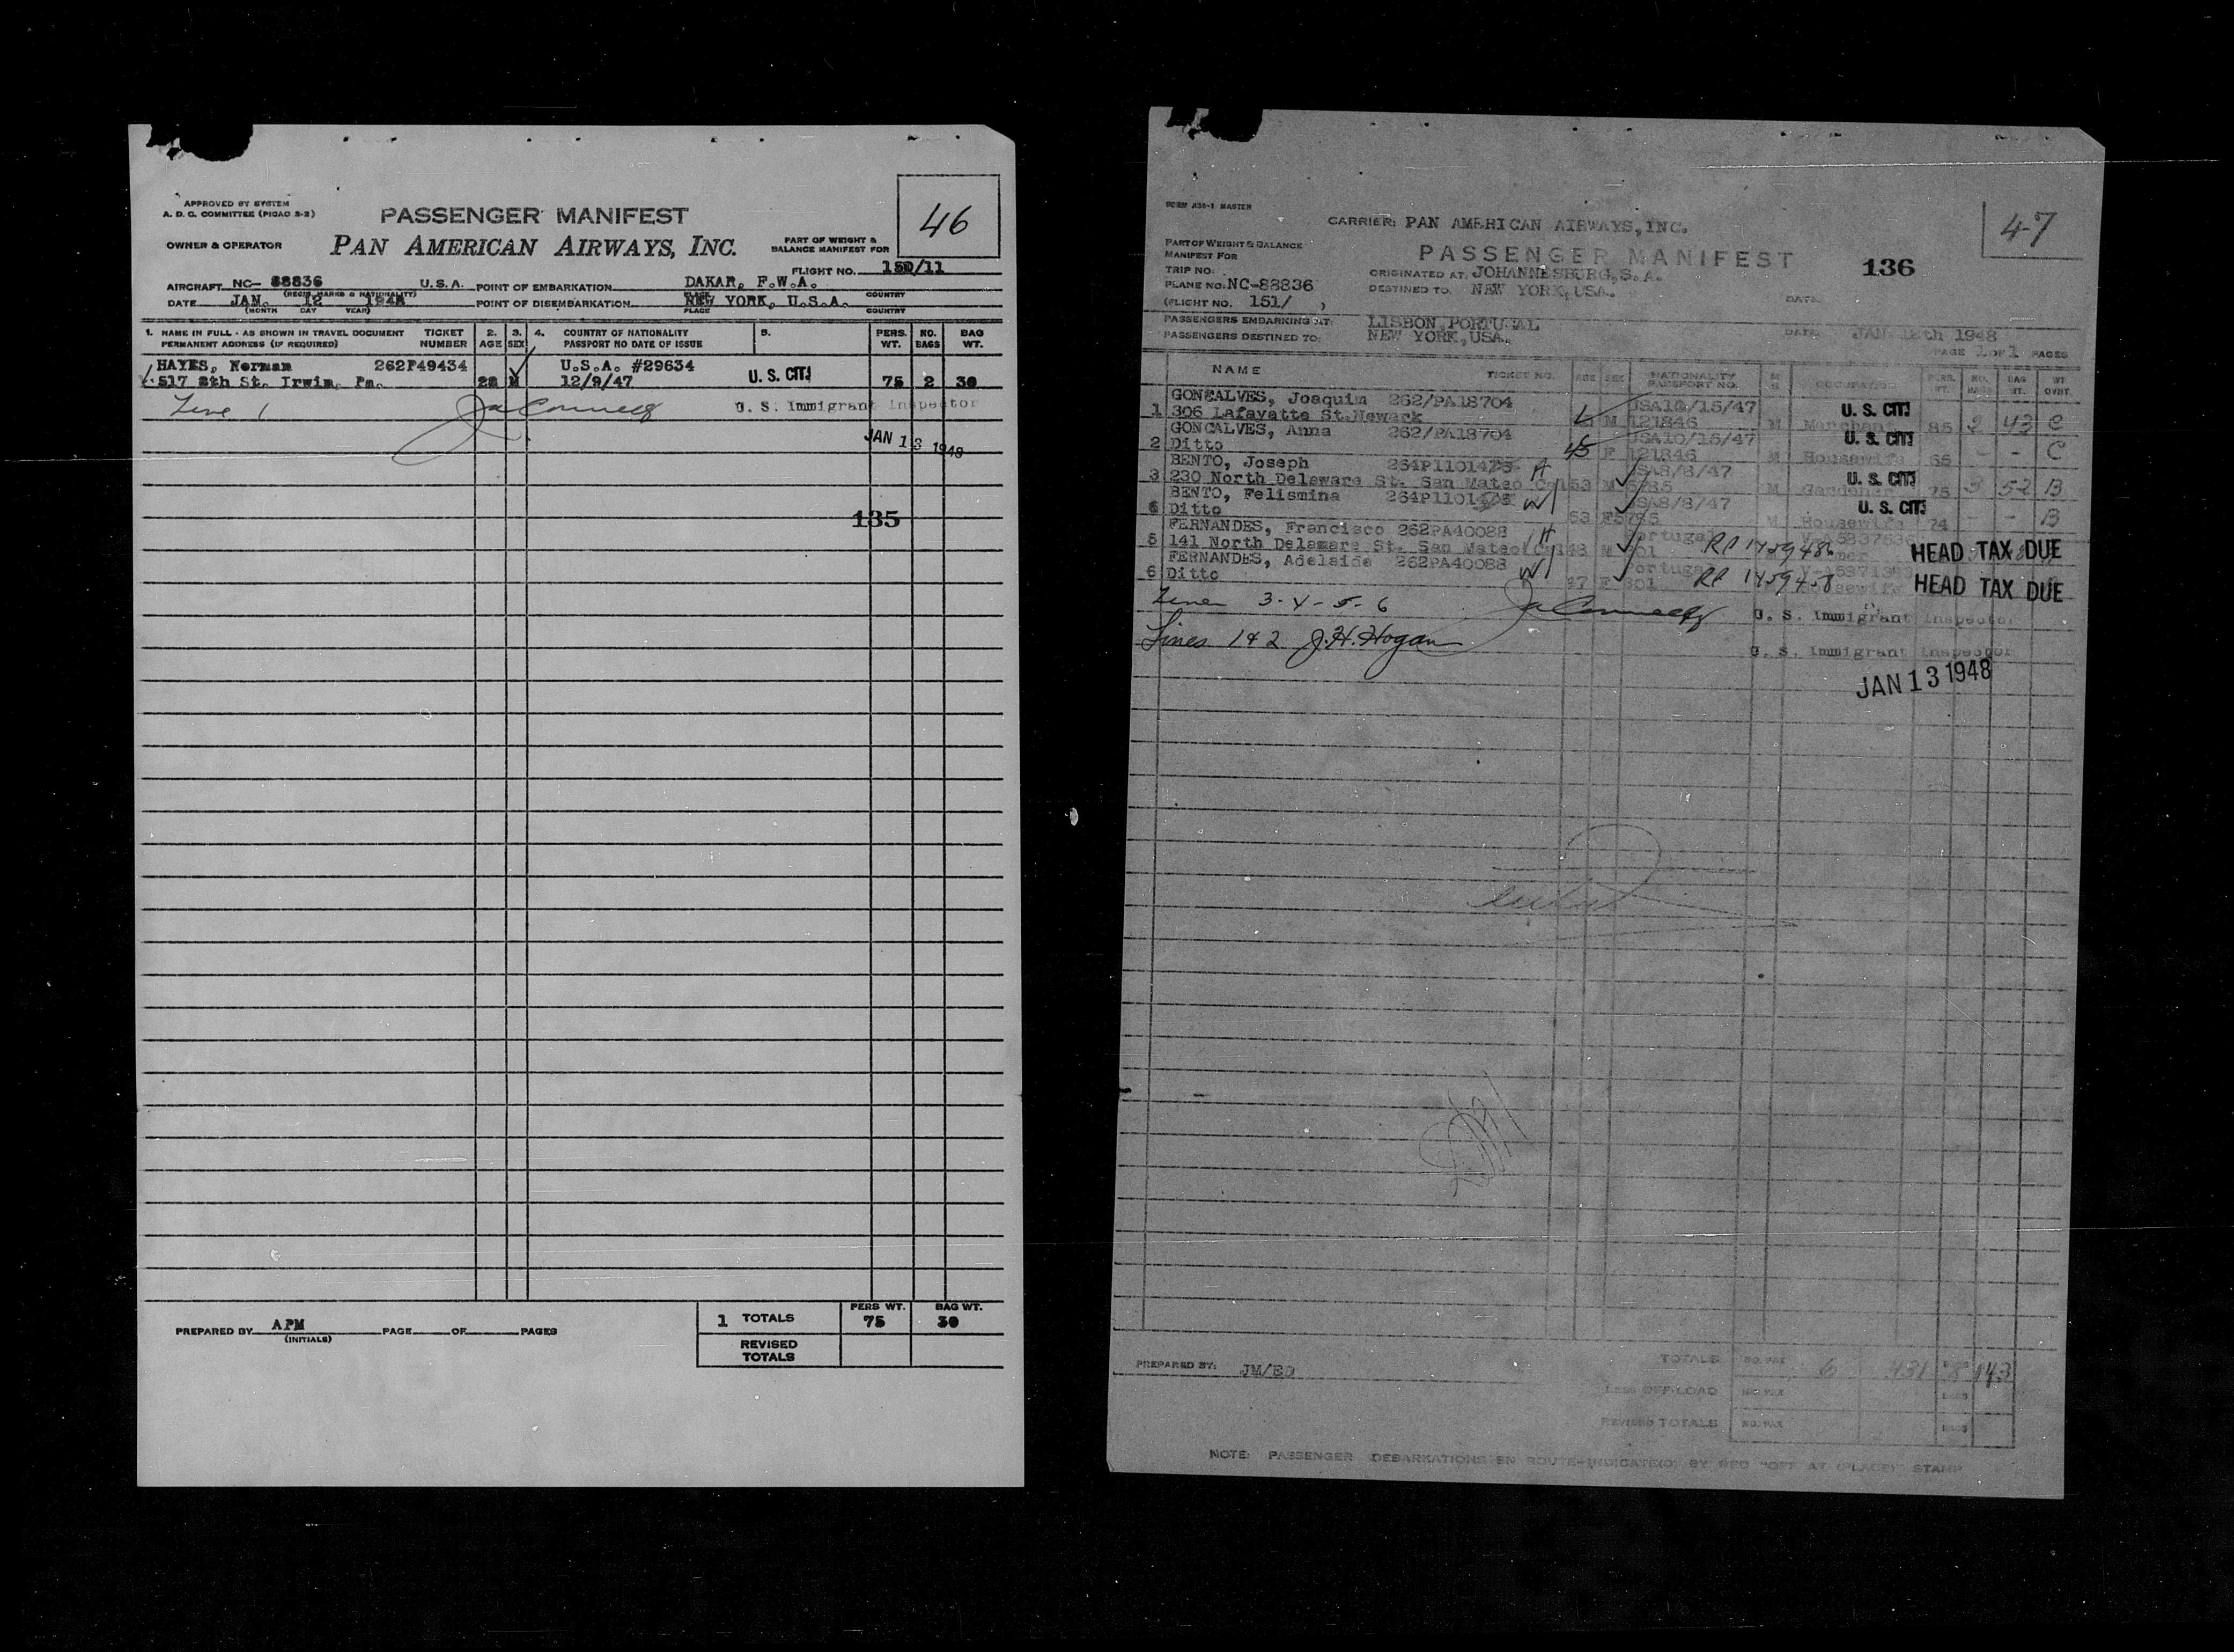 APPROVED BY SYSTEM
A. D. C. COMMITTEE (PICAO 2-2)
PASSENGER MANIFEST
46
OWNER & OPERATOR
PAN AMERICAN AIRWAYS, INC.
PART OF WEIGHT &
BALANCE MANIFEST FOR
FLIGHT NO. 150/11
AIRCRAFT NC- 88836 U.S.A. POINT OF EMBARKATION DAKAR, F.W.A.
(REGIS. MARKS & NATIONALITY) PLACE COUNTRY
DATE JAN. 12 1948 POINT OF DISEMBARKATION NEW YORK, U.S.A.
(MONTH DAY YEAR) PLACE COUNTRY
1. NAME IN FULL - AS SHOWN IN TRAVEL DOCUMENT TICKET 2. 3. 4. COUNTRY OF NATIONALITY 5. PERS. NO. BAG
PERMANENT ADDRESS (IF REQUIRED) NUMBER AGE SEX PASSPORT NO DATE OF ISSUE WT. BAGS WT.
HAYES, Norman 262P49434 U.S.A. #29634
517 8th St. Irwin, Pa. 22 M 12/9/47 U.S. CIT. 75 2 30
Line 1 U. S. Immigrant Inspector
JAN 13 1948
135
PERS WT. BAG WT.
1 TOTALS 75 30
PREPARED BY APM PAGE OF PAGES
(INITIALS)
REVISED
TOTALS
FORM A36-1 MASTER
CARRIER: PAN AMERICAN AIRWAYS, INC.
47
PART OF WEIGHT & BALANCE
MANIFEST FOR
PASSENGER MANIFEST
136
TRIP NO:
ORIGINATED AT: JOHANNESBURG, S.A.
PLANE NO: NC-88836
DESTINED TO: NEW YORK, USA.
DATE
(FLIGHT NO. 151/ )
PASSENGERS EMBARKING AT: LISBON, PORTUGAL
DATE: JAN 12th 1948
PASSENGERS DESTINED TO: NEW YORK, USA.
PAGE 1 OF 1 PAGES
NAME TICKET NO. AGE SEX NATIONALITY PASSPORT NO. OCCUPATION PERS. WT. NO. BAGS BAG WT.
GONSALVES, Joaquim 262/PA18704 USA10/15/47
1 306 Lafayatte St.Newark M 121846 M Merchant U.S. CIT. 85 2 43 C
GONCALVES, Anna 262/PA18704 USA10/15/47
2 Ditto 45 F 121846 M Housewife U.S. CIT. 65 - - C
BENTO, Joseph H USA8/8/47
3 230 North Delaware St. San Mateo Cal 53 M M Gardener U.S. CIT. 75 3 52 B
BENTO, Felismina W USA8/8/47
6 Ditto 53 F M Housewife U.S. CIT. 74 - - B
FERNANDES, Francisco 262PA40088 H Portugal
5 141 North Delamare St. San Mateo M 301 RP 1459486 HEAD TAX DUE
FERNANDES, Adelaide 262PA40088 W Portugal
6 Ditto F 301 RP HEAD TAX DUE
Lines 3-4-5-6 U. S. Immigrant Inspector
Lines 1 & 2 J.H. Hogan U. S. Immigrant Inspector
JAN 13 1948
PREPARED BY: TOTALS NO. PAX 6 431 8 143
LESS OFF-LOAD NO. PAX
REVISED TOTALS NO. PAX
NOTE: PASSENGER DEBARKATIONS EN ROUTE-INDICATE(D) BY RED "OFF AT (PLACE)" STAMP